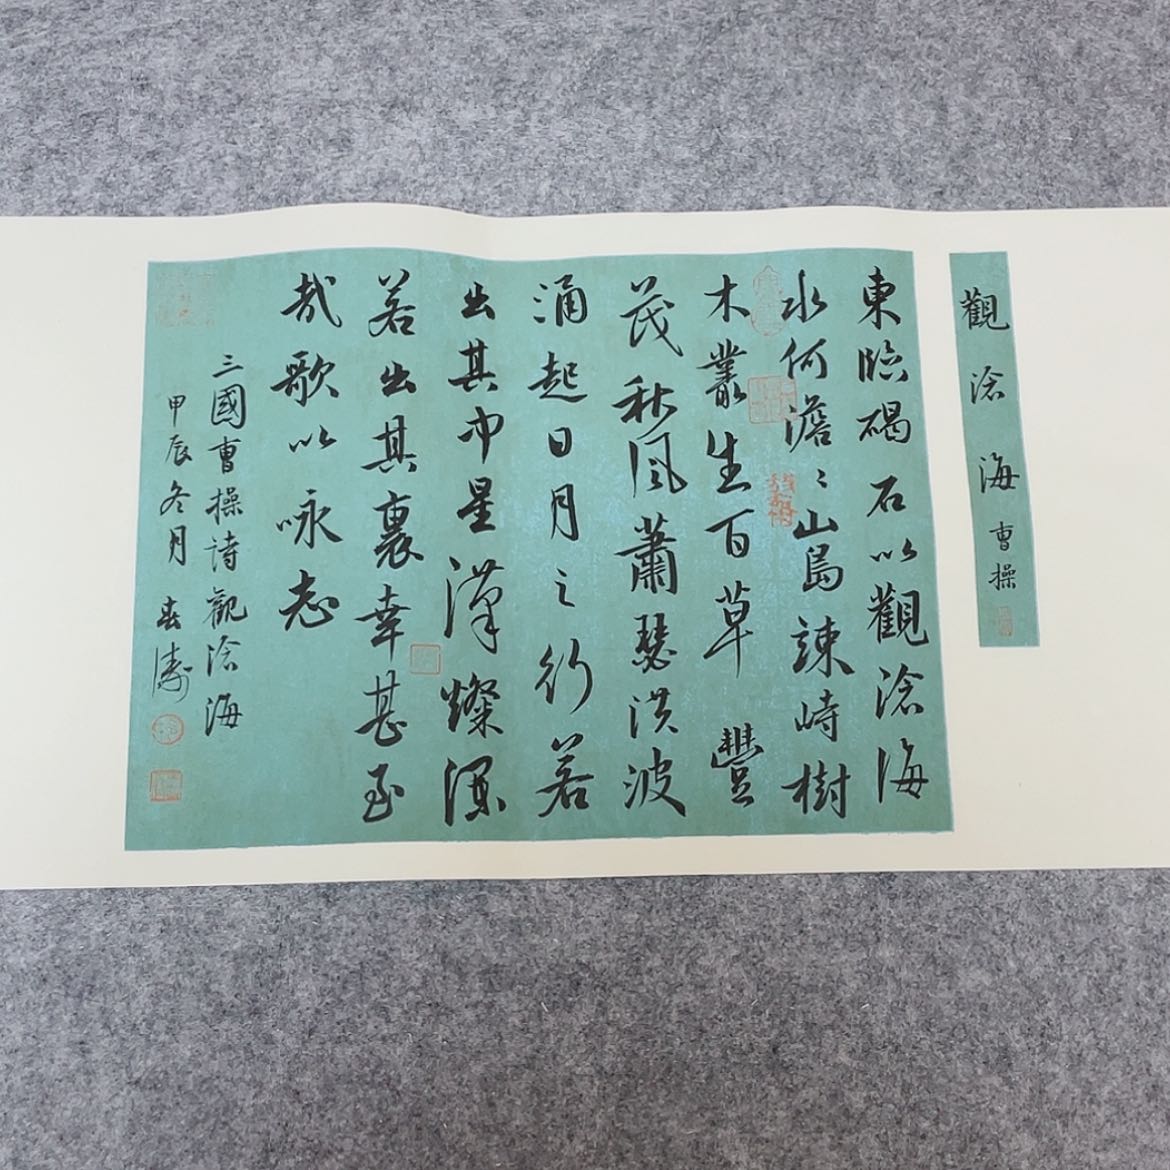 觀滄海 曹操
東臨碣石以觀滄海
水何澹〻山島竦峙樹
木叢生百草豐
茂秋風蕭瑟洪波
涌起日月之行若
出其中星漢燦爛
若出其裏幸甚至
哉歌以咏志
三國曹操詩觀滄海
甲辰冬月 春濤